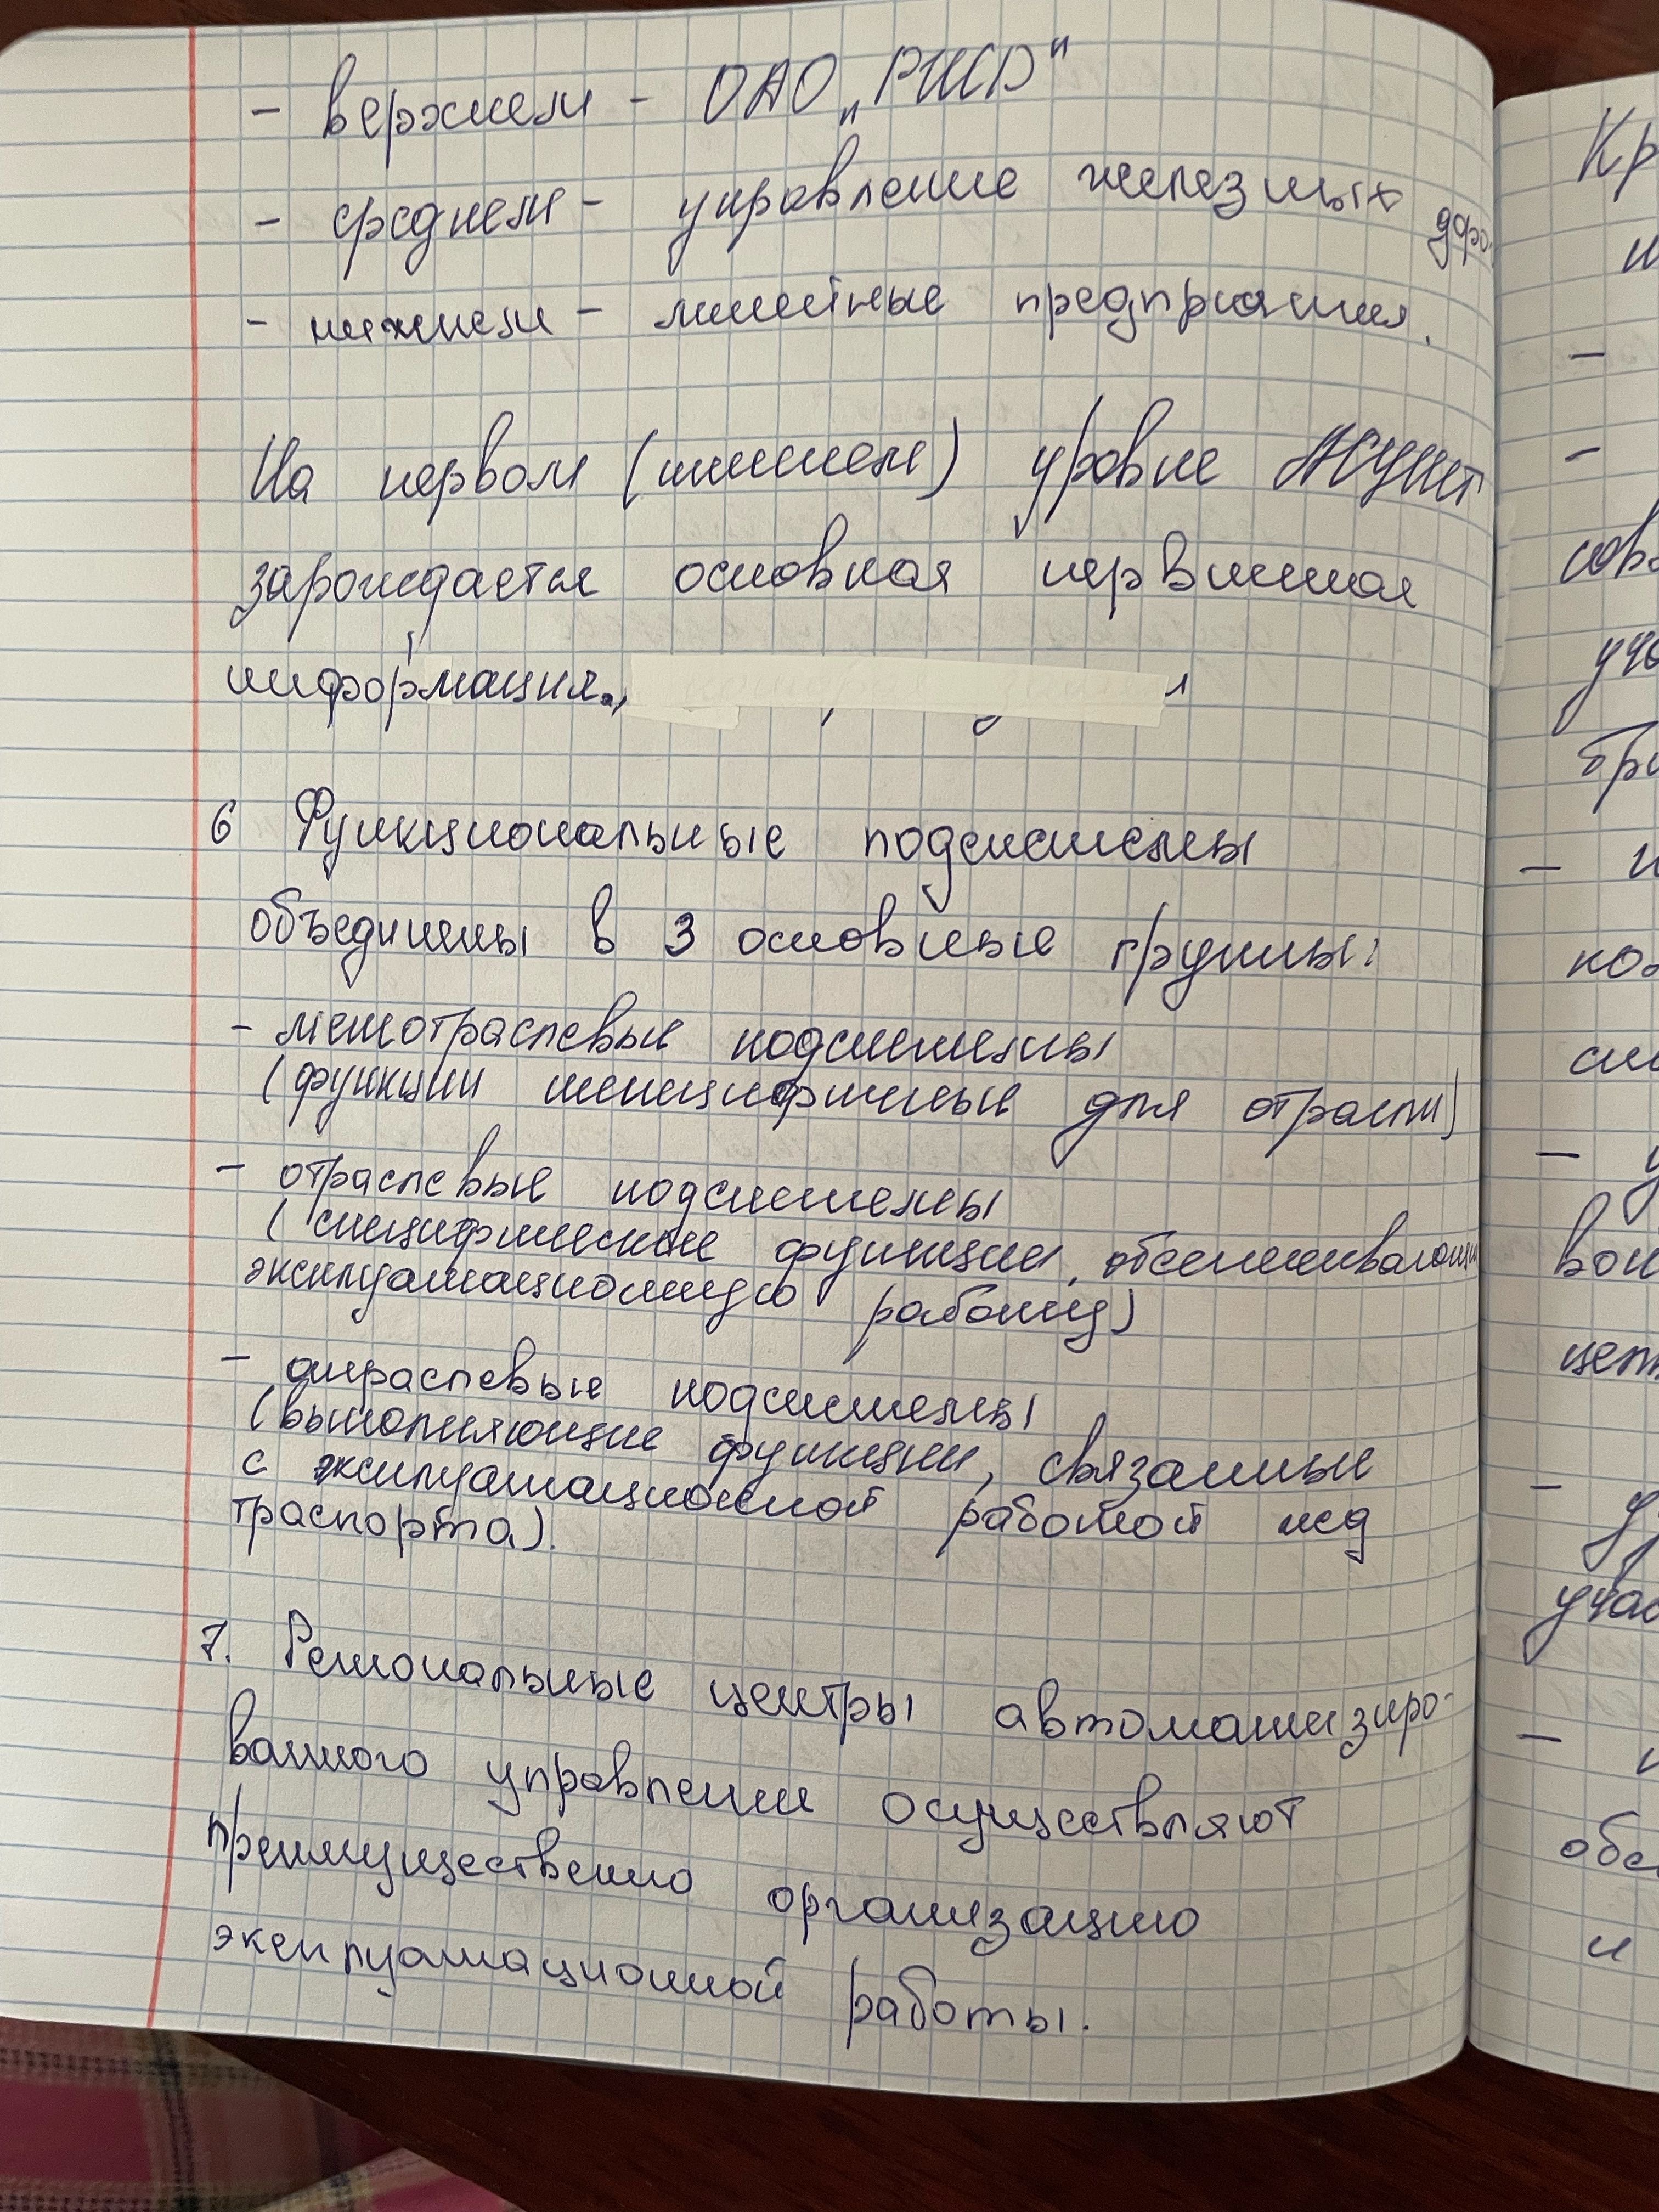 - верхнем - ОАО „РЖД"
- среднем - управление железных дро.
- нижнем - линейные предприятия.
На первом (нижнем) уровне АСУЖТ
зарождается основная первичная
информация.,
6 Функциональные подсистемы
объединены в 3 основные группы:
- межотраслевые подсистемы
(функции специфичные для отрасли)
- отраслевые подсистемы
(специфические функции, обеспечивающи
эксплуатационную работу)
- отраслевые подсистемы
(выполняющие функции, связанные
с эксплуатационной работой жд
траспорта).
7. Региональные центры автоматизиро-
ванного управления осуществляют
преимущественно организацию
эксплуатационной работы.
Кр
-
-
сов
учо
бри
-
-
вои
-
учас
-
обес
и